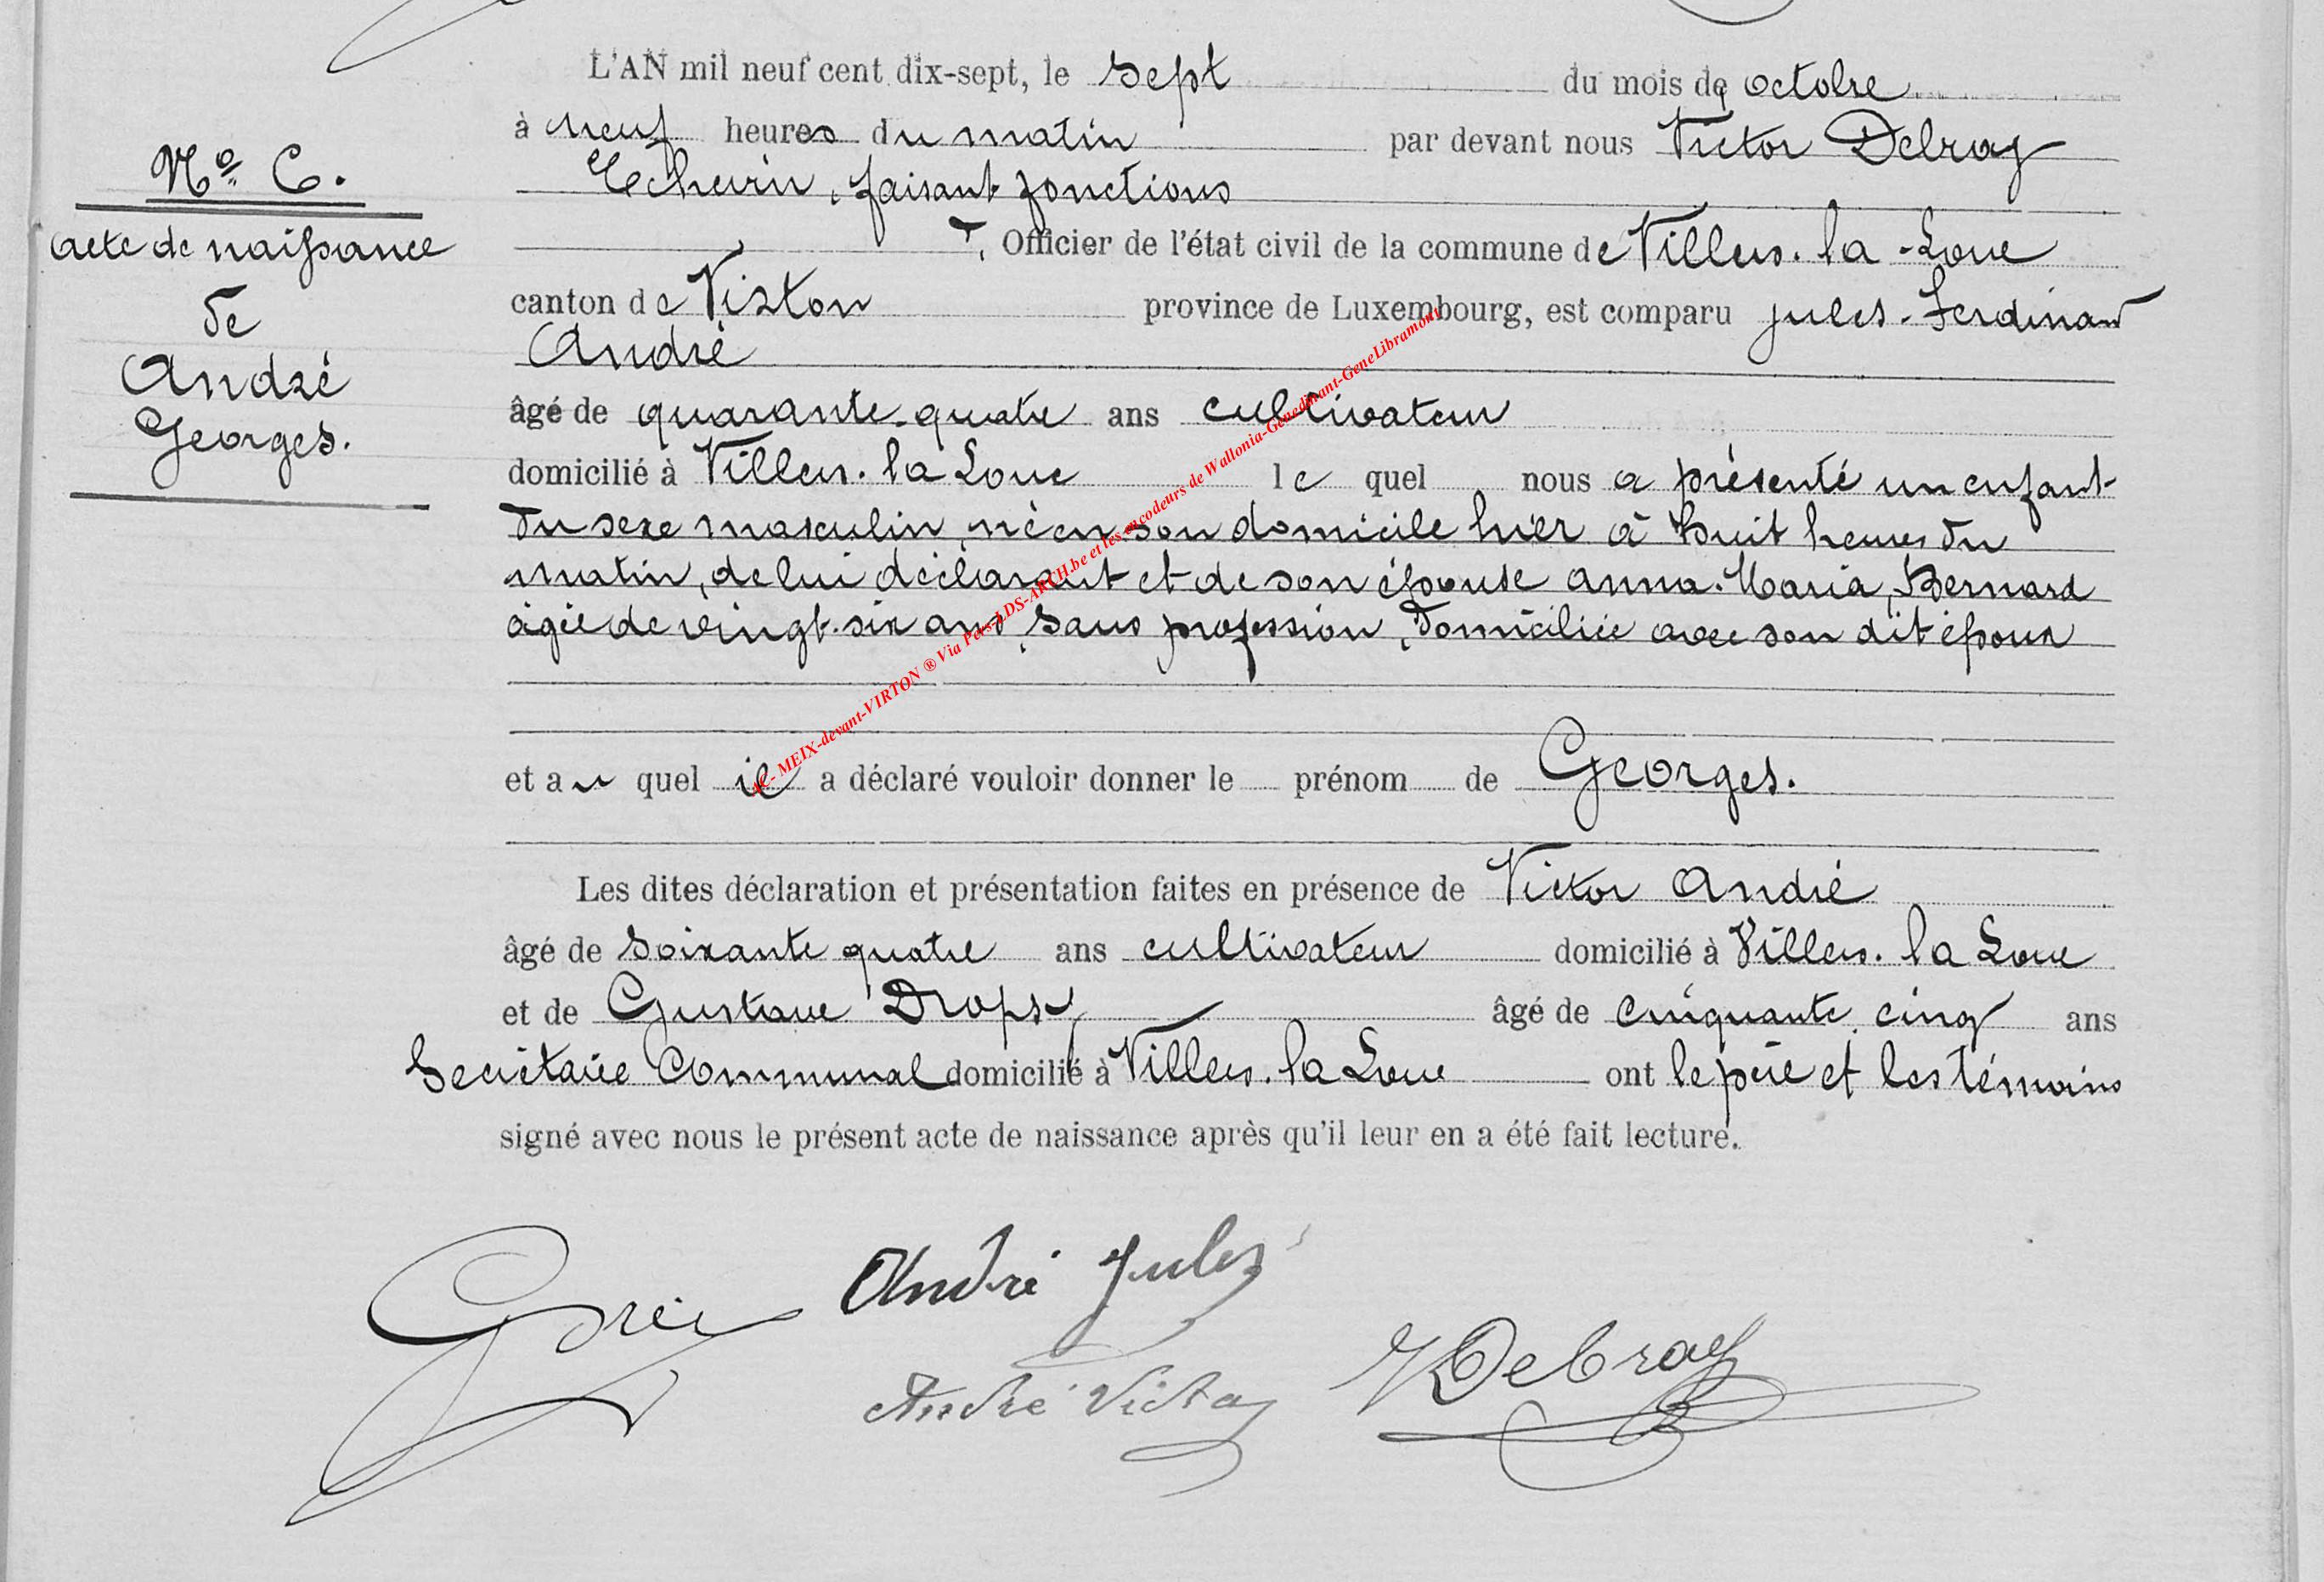 L'AN mil neuf cent dix-sept, le sept du mois de octobre
à neuf heures du matin par devant nous Victor Debray
Echevin, faisant fonctions
d'Officier de l'état civil de la commune de Villers-la-Loue
canton de Virton province de Luxembourg, est comparu Jules-Ferdinand
André
âgé de quarante-quatre ans cultivateur
domicilié à Villers-la Loue lequel nous a présenté un enfant
du sexe masculin, né en son domicile hier à huit heures du
matin, de lui déclarant et de son épouse Anna-Maria, Bernard
âgée de vingt-six ans, sans profession, domiciliée avec son dit époux
et au quel il a déclaré vouloir donner le prénom de Georges.
Les dites déclaration et présentation faites en présence de Victor André
âgé de soixante quatre ans cultivateur domicilié à Villers-la Loue
et de Gustave Dropsy âgé de cinquante cinq ans
Secrétaire Communal domicilié à Villers-la Loue ont le père et les témoins
signé avec nous le présent acte de naissance après qu'il leur en a été fait lecture.
No 6.
Acte de naissance
de
André
Georges.
André Jules
André Victor
VDebray
AC- MEIX-devant-VIRTON ® Via Pers-LDS-ARCH.be et les encodeurs de Wallonia-Genedinant-GeneLibramont